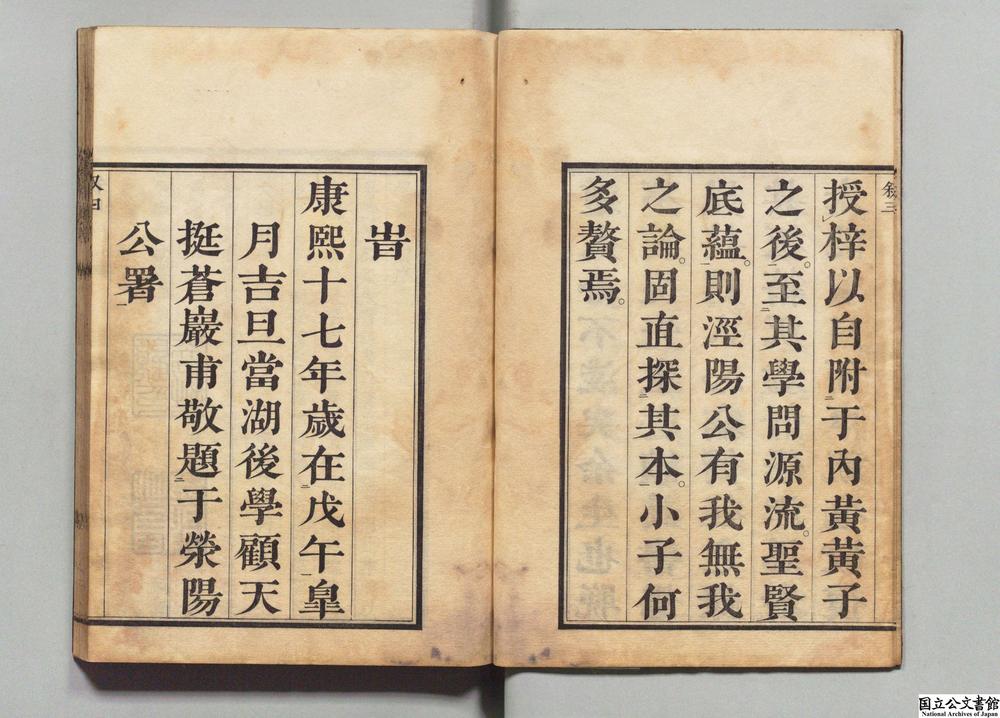 敘三
授梓以自附于內黃黃子
之後。至其學問源流。聖賢
底蘊。則涇陽公有我無我
之論。固直探其本。小子何
多贅焉。
旹
康熙十七年歲在戊午皐
月吉旦當湖後學顧天
挺蒼巖甫敬題于滎陽
公署
国立公文書館
National Archives of Japan